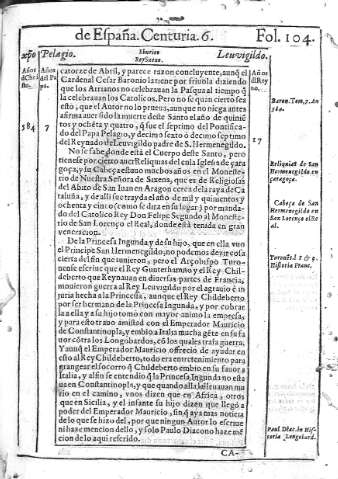 de España. Centuria. 6. Fol. 104.
Pelagio. Leuvigildo.
Años
Años del Pa
Años del Rey
584
7
17
catorze de Abril, y parece razon concluyente, aunq̃ el
Cardenal Cesar Baronio la tiene por friuola diziendo
que los Arrianos no celebrauan la Pasqua al tiempo q̃
la celebrauan los Catolicos. Pero no se quan cierto sea
esto, que el Autor no lo prueua, aunque no niega antes
afirma auer sido la muerte deste Santo el año de quiniẽ
tos y ochẽta y quatro, q̃ fue el septimo del Pontifica-
do del Papa Pelagio, y decimo sexto ò decimo septimo
del Reynado de Leuvigildo padre de S. Hermenegildo.
No se sabe donde està el Cuerpo deste Santo, pero
tienese por cierto auer Reliquias del en la Iglesia de Çara
goça, y la Cabeça estuuo muchos años en el Moneste-
rio de Nuestra Señora de Sixena, que es de Religiosas
del Abito de San Iuan en Aragon cerca de la raya de Ca
taluña, y de alli se traydo el año de mil y quinientos y
ochenta y cinco como se dira en su lugar, por manda-
do del Catolico Rey Don Felipe Segundo al Moneste-
rio de San Lorenço el Real, donde està tenida en gran
veneracion.
De la Princesa Ingunda, y de su hijo, que en ella vuo
el Principe San Hermenegildo, no podemos dezir cosa
cierta del fin que tuuieron, pero el Arçobispo Turo-
nense escriue que el Rey Gontrehamno y el Rey Chil-
deberto que Reynauan en diuersas partes de Francia,
mouieron guerra al Rey Leuuigildo por el agrauio ê in
juria hecha a la Princesa, aunque el Rey Childeberto
por ser hermano de la Princesa Ingunda, y por cobrar
la a ella y a su hijo tomò con mayor animo la empresa,
y para esto trauo amistad con el Emperador Mauricio
de Constantinopla, y embio a Italia mucha gẽte en su fa
uor cõtra los Longobardos, cõ los quales traia guerra.
Y aunq̃ el Emperador Mauricio offrecio de ayudar en
esto al Rey Childeberto, todo era entretenimiento para
grangear el socorro q̃ Childeberto embio en su fauor a
Italia, y al fin se entendio q̃ la Princesa Ingunda no esta
ua en Constantinopla, y que quando alla la lleuauan mu
rio en el camino, vnos dizen que en Africa, otros
que en Sicilia, y el infante su hijo dizen que llegò a
poder del Emperador Mauricio, sin q̃ aya mas noticia
de lo que se hizo del, por que ningun Autor lo escriue
ni haze mencion dello, y solo Paulo Diacono haze mẽ
cion de lo aqui referido.
CA-
Baron. Tom. 7. An
Reliquias de San
Hermenegildo en
Çaragoça.
Cabeça de San
Hermenegildo en
San Lorenço el Re
al.
Historia Franc.
Paul Diac. in His-
toria Longobard.